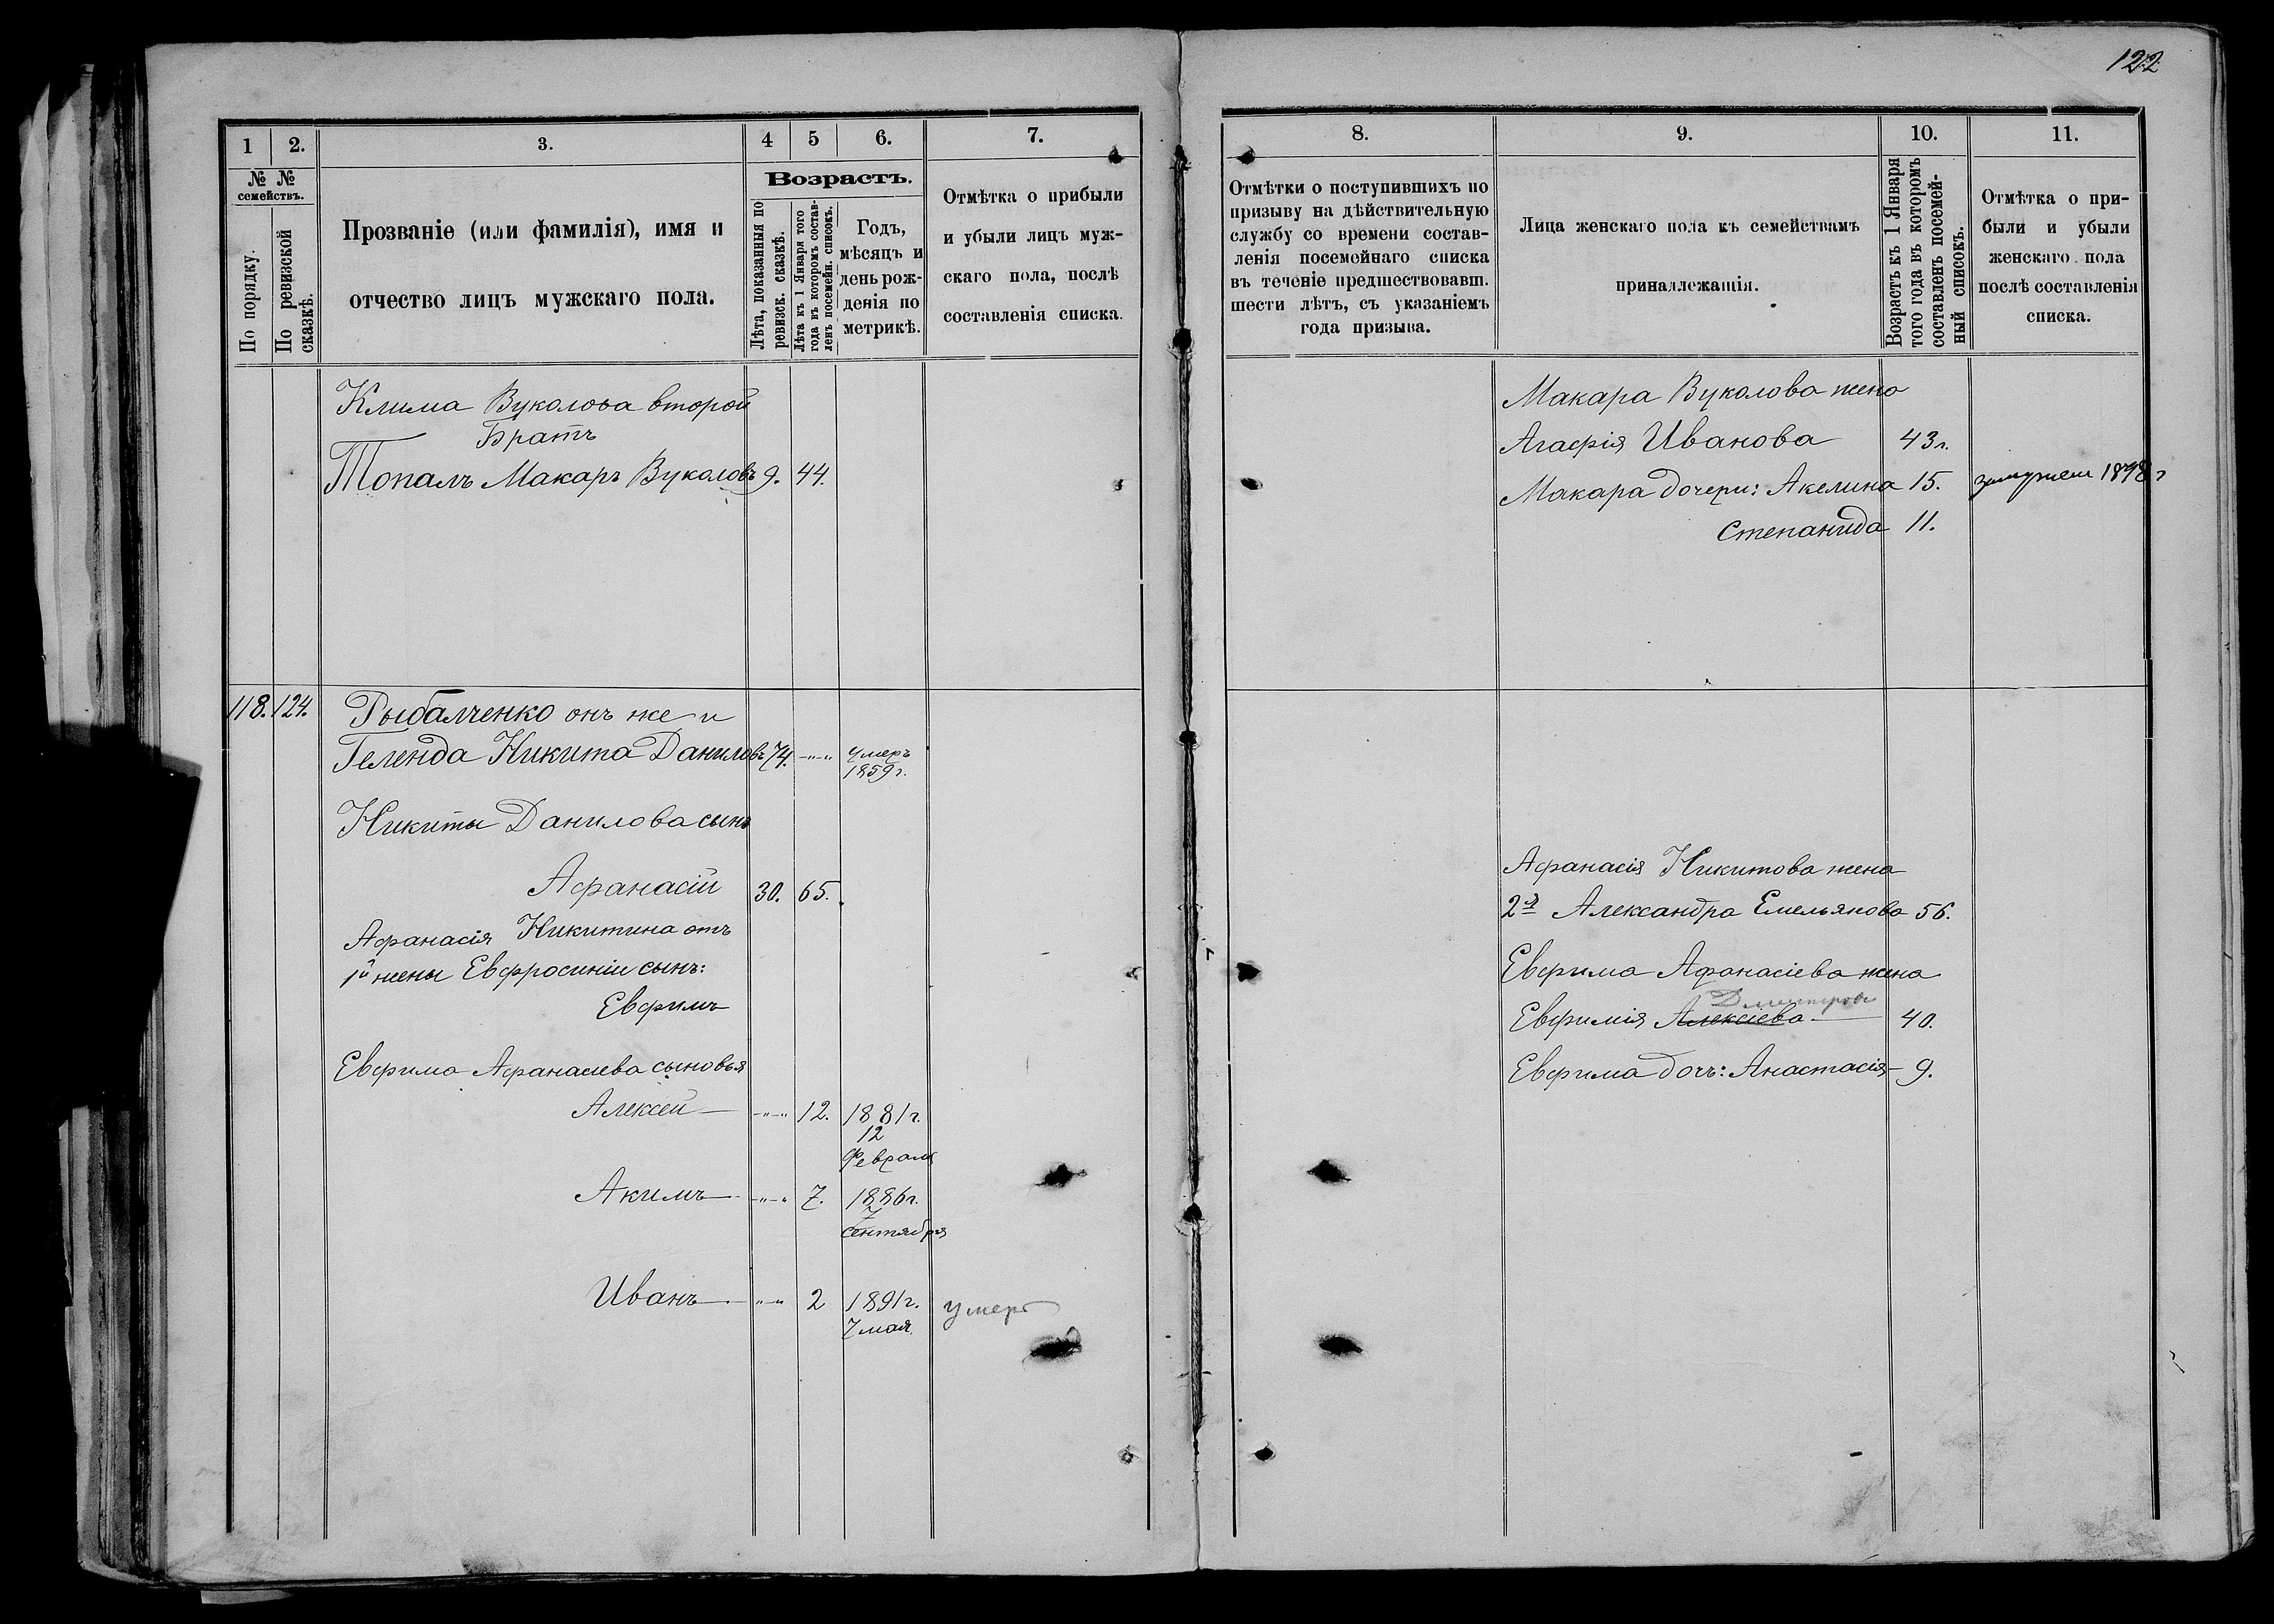 122
1
2.
3.
4
5
6.
7.
№ №
семействъ.
По порядку.
По ревизской
сказкѣ.
Прозваніе (или фамилія), имя и
отчество лицъ мужскаго пола.
Возрастъ.
Лѣта, показанныя по
ревизск. сказкѣ.
Лѣта къ 1 Января того
года въ которомъ состав-
ленъ посемейн. списокъ.
Годъ,
мѣсяцъ и
день рож-
денія по
метрикѣ.
Отмѣтка о прибыли
и убыли лицъ муж-
скаго пола, послѣ
составленія списка.
Клима Вуколова второй
Братъ
Топалъ Макаръ Вуколовъ 9. 44.
118. 124. Рыбалченко онъ же и
Геленда Никита Даниловъ 74. -"-" умеръ
1859 г.
Никиты Данилова сынъ
Афанасій 30. 65.
Афанасія Никитина отъ
1й жены Евфросиніи сынъ:
Евфимъ
Евфима Афанасиева сыновья
Алексей -"-" 12. 1881 г.
12
Февраля
Акимъ -"-" 7. 1886 г.
7
Сентября
Иванъ "-" 2 1891 г. умеръ
7 мая.
8.
9.
10.
11.
Отмѣтки о поступившихъ по
призыву на дѣйствительную
службу со времени состав-
ленія посемейнаго списка
въ теченіе предшествовавш.
шести лѣтъ, съ указаніемъ
года призыва.
Лица женскаго пола къ семействамъ
принадлежащія.
Возрастъ къ 1 Января
того года въ которомъ
составленъ посемей-
ный списокъ.
Отмѣтка о при-
были и убыли
женскаго пола
послѣ составленія
списка.
Макара Вуколова жена
Агафія Иванова 43 л.
Макара дочери: Акелина 15. замужем 1898 г
Степанида 11.
Афанасія Никитова жена
2я Александра Емельянова 56.
Евфима Афанасіева жена
Дмитрова
Евфимія Алексіева 40.
Евфима дочь: Анастасія 9.